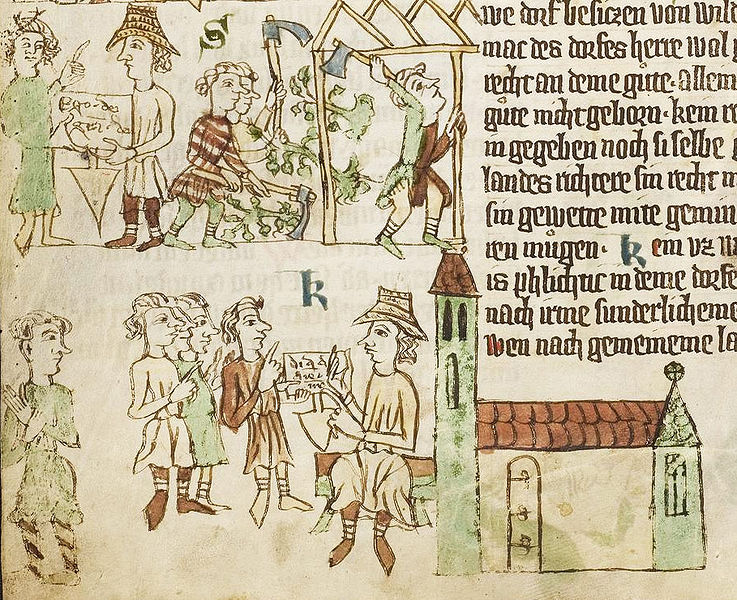 S
Ego de
we dorf besiczen von wild
mac des dorfes herre wol
recht an deme gute. allem
gute nicht geborn. kem re
in gegeben noch si selbe
landes richtere sin recht
sin gewette mite gemin
ren mugen. kein vz
is phlichtic in deme dorfe
nach irme sunderlicheme
wen nach gemeineme la
k